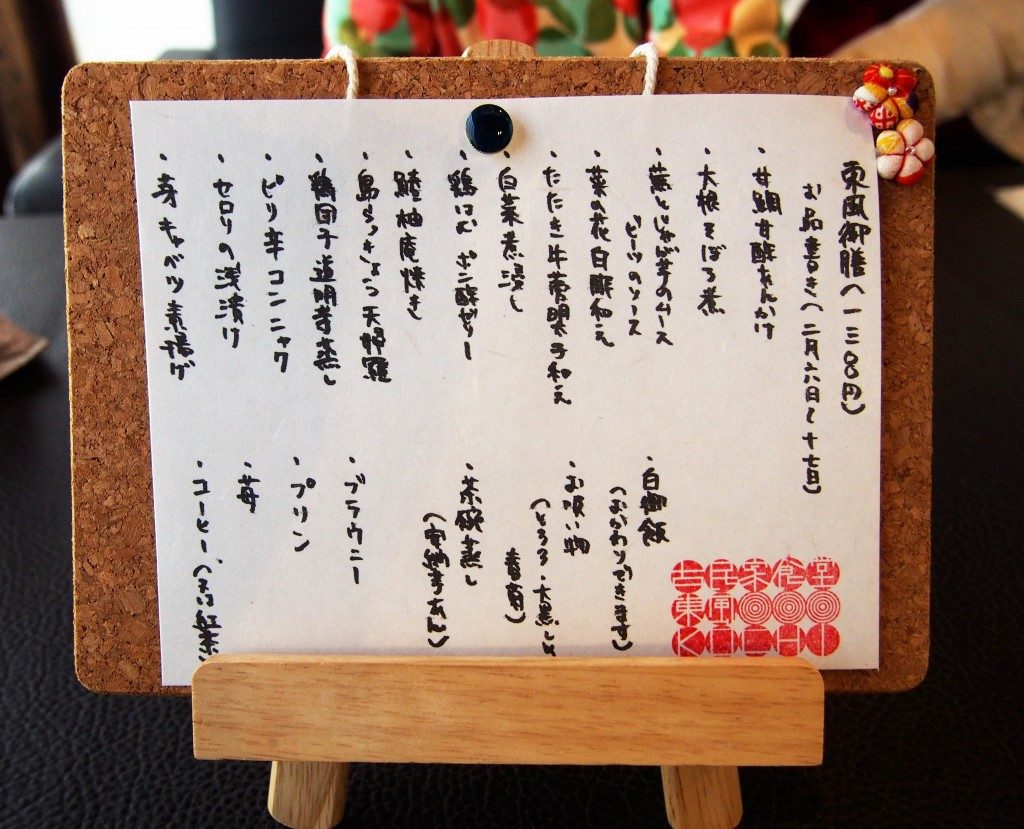 東風御膳(一三八〇円)
お品書き(二月六日〜十七日)
・甘鯛甘酢あんかけ
・大根そぼろ煮
・蒸しじゃが芋のムース
ビーツのソース
・菜の花白酢和え
・たたき牛蒡明太子和え
・白菜煮浸し
・鶏はむ ポン酢ゼリー
・鰆柚庵焼き
・島らっきょう天婦羅
・鶏団子道明寺蒸し
・ピリ辛コンニャク
・セロリの浅漬け
・芽キャベツ素揚げ
・白御飯
(おかわりできます)
・お吸い物
(とろろ・大黒しめじ
春菊)
・茶碗蒸し
(安納芋あん)
・ブラウニー
・プリン
・苺
・コーヒー(又は紅茶)
古民家食堂
東風